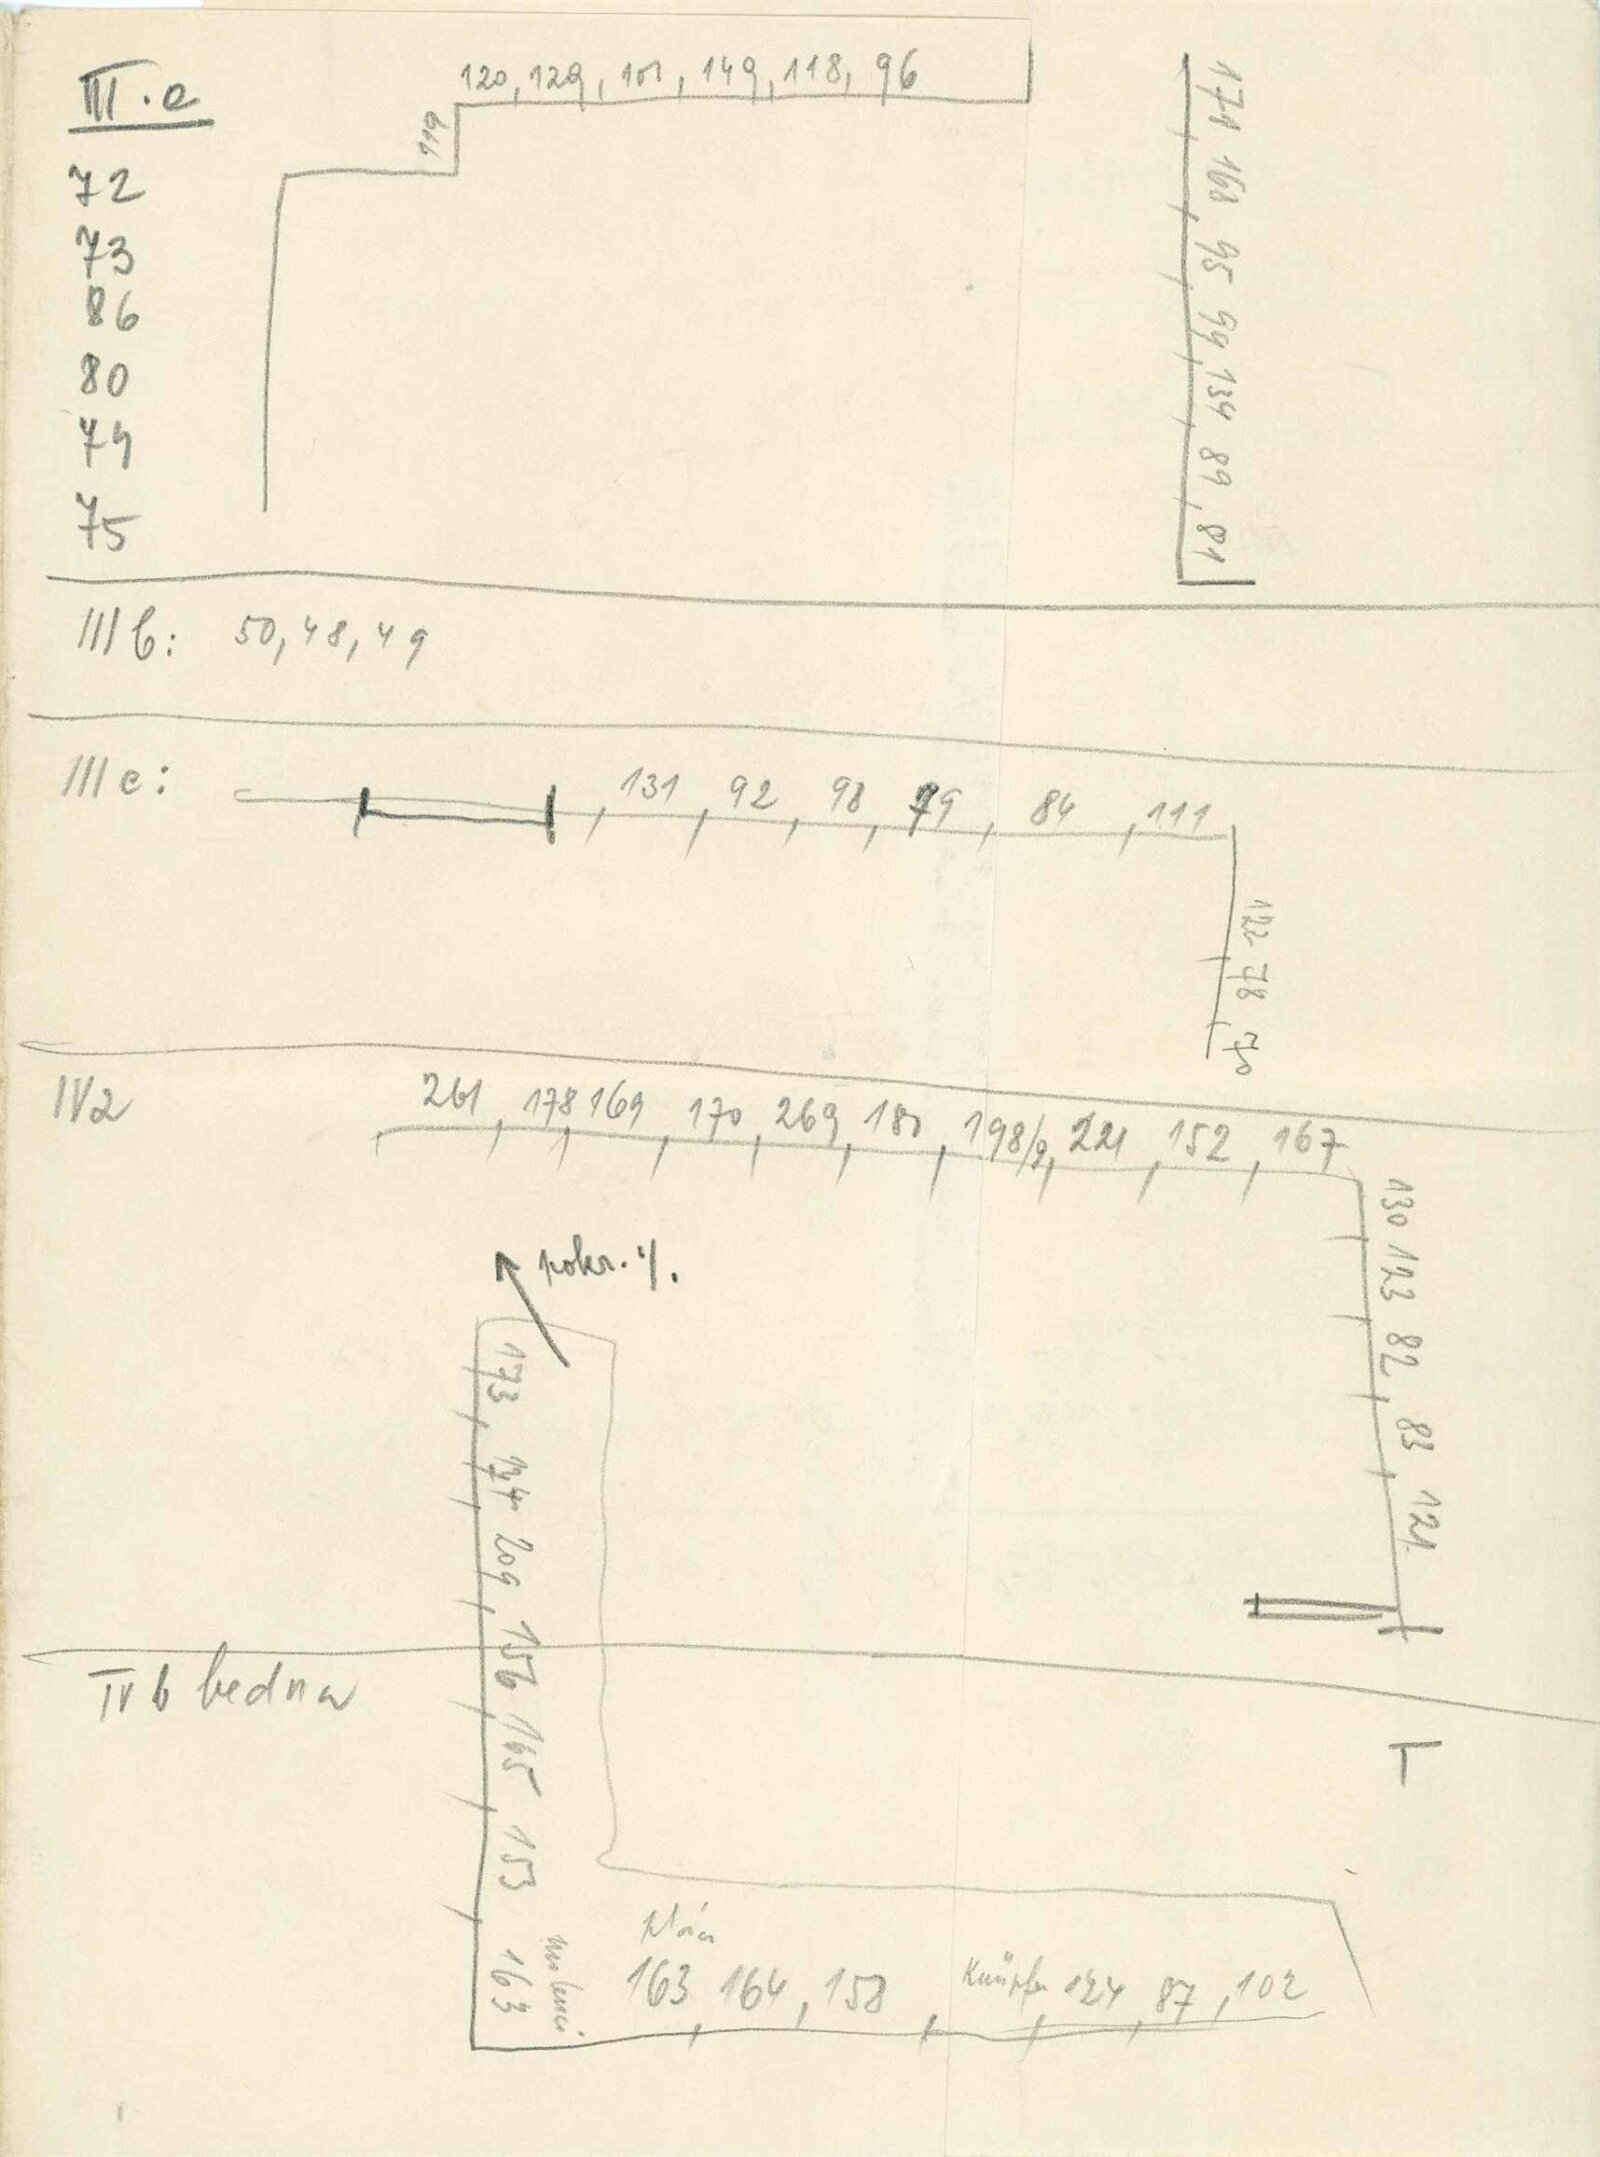 III.a
120, 129, 101, 149, 118, 96
119
72
73
86
80
74
75
171 168 95 94 134 89 81
III b: 50, 48, 49
III c:
131 92 98 79 84 111
122 78 90
IV a
261 178 169 170 269 180 198/9 221 152 167
130 123 82 83 121
pokr. ·/.
173 174 209 156 165 153 163
IV b bedna
163 164, 158
124 87, 102